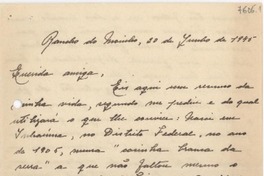 7606.1
Rancho do Moinho, 20 de Junho de 1945
Querida amiga,
Eis aqui um resumo da
minha vida, segundo me pediu e do qual
utilizará o que lhe convier: Nasci em
Jacarina, no Distrito Federal, no ano
de 1905, numa "casinha branca da
serra" a que não faltou mesmo o